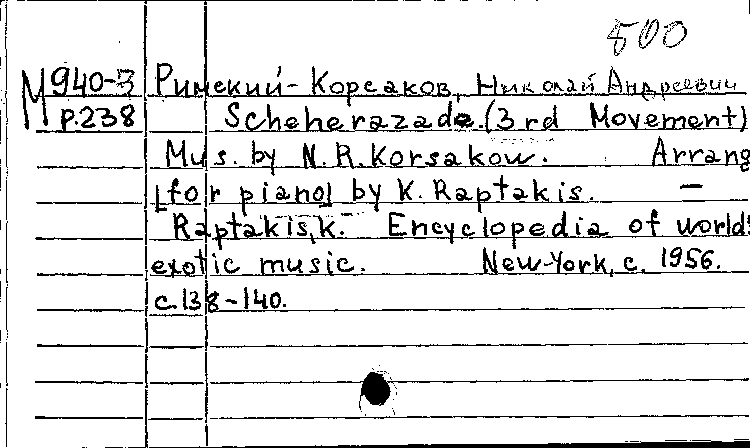 500
М 940-3 Римский-Корсаков, Николай Андреевич
р.238 Scheherazade.(3rd Movement)
Mus. by N.R.Korsakow. Arrang
[for piano] by K. Raptakis. —
Raptakis,K. Encyclopedia of world's
exotic music. New-York, c. 1956.
c.138-140.